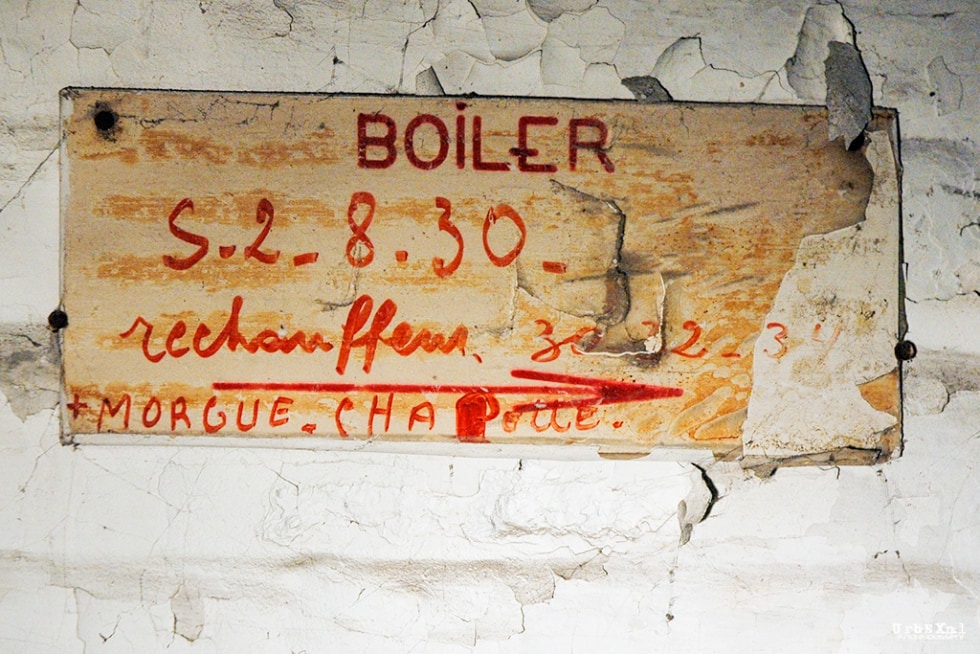 BOiLER
S.2_8.30_
rechauffeur. 32_34
+ MORGUE_CHAPotte.
UrbEXnl